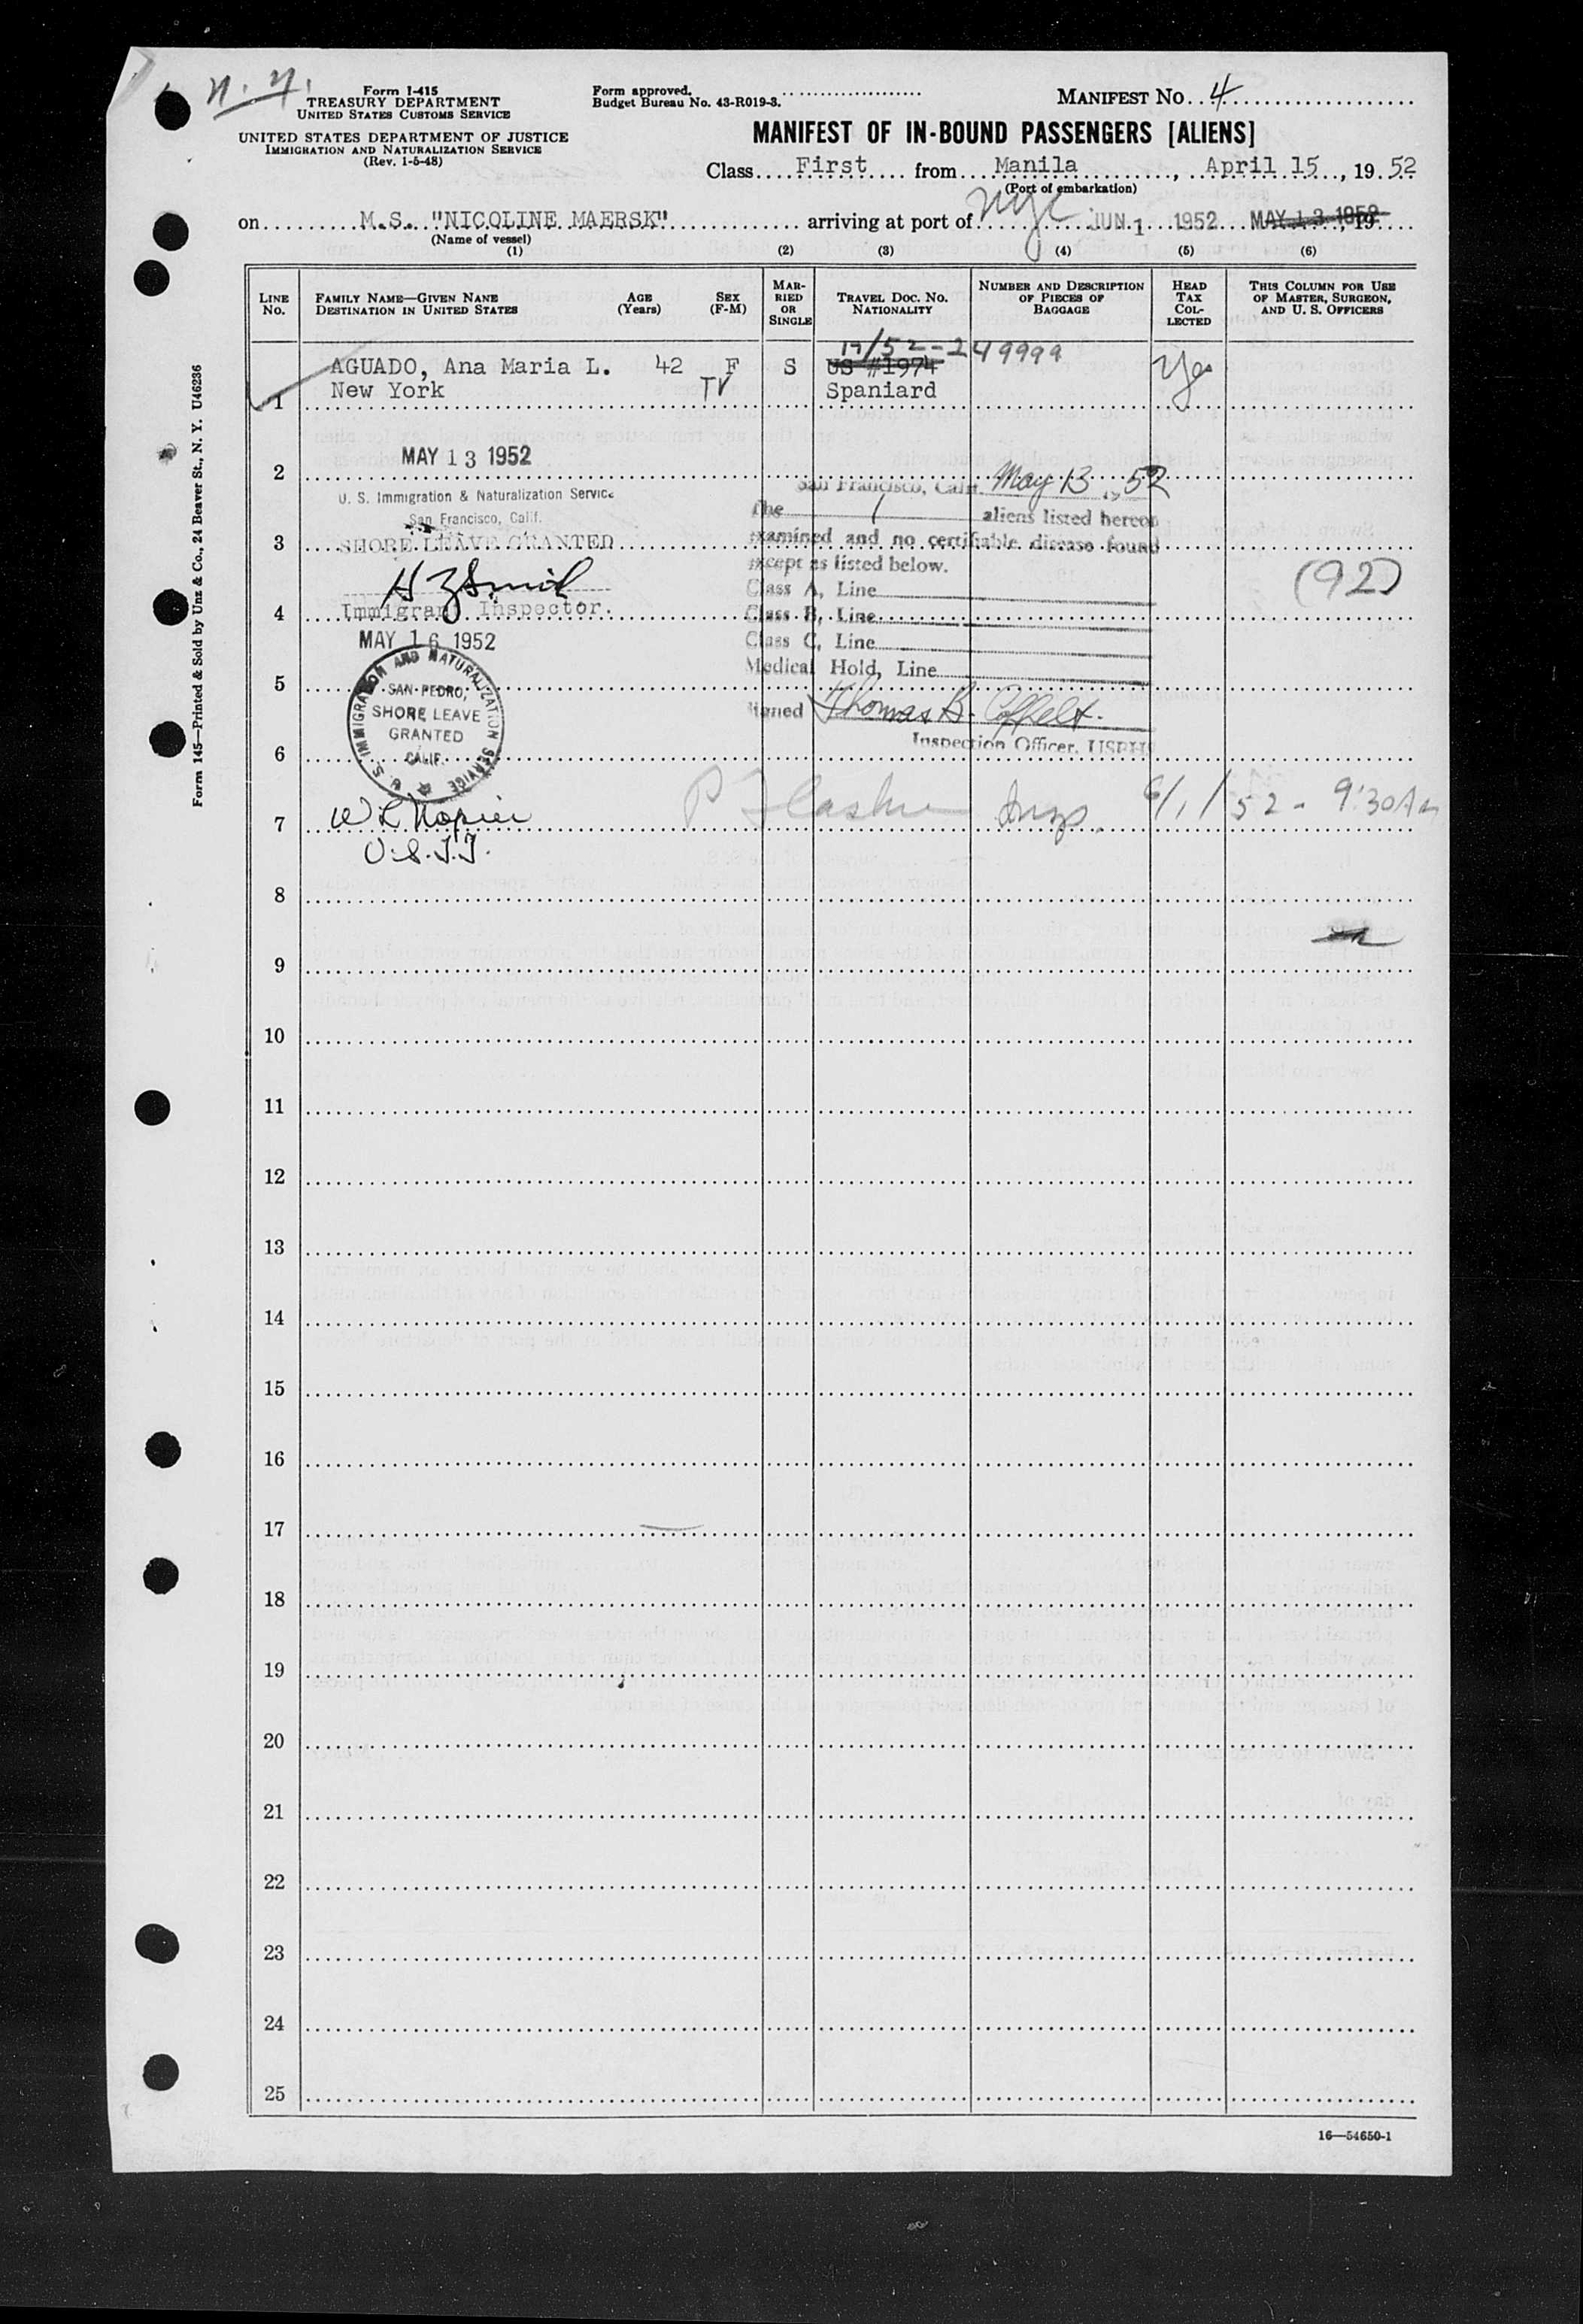 n. y.
Form I-415
TREASURY DEPARTMENT
UNITED STATES CUSTOMS SERVICE
UNITED STATES DEPARTMENT OF JUSTICE
IMMIGRATION AND NATURALIZATION SERVICE
(Rev. 1-5-48)
Form approved.
Budget Bureau No. 43-R019-3.
MANIFEST NO. 4
MANIFEST OF IN-BOUND PASSENGERS [ALIENS]
Class First from Manila, April 15, 19 52
(Port of embarkation)
on M.S. "NICOLINE MAERSK" arriving at port of nyc JUN 1 1952 MAY 13 1952, 19
(Name of vessel)
(1) (2) (3) (4) (5) (6)
LINE NO.
FAMILY NAME—GIVEN NANE DESTINATION IN UNITED STATES
AGE (Years)
SEX (F-M)
MARRIED OR SINGLE
TRAVEL DOC. NO. NATIONALITY
NUMBER AND DESCRIPTION OF PIECES OF BAGGAGE
HEAD TAX COLLECTED
THIS COLUMN FOR USE OF MASTER, SURGEON, AND U. S. OFFICERS
/52-249999
AGUADO, Ana Maria L. 42 F S US #1974 Yes
1 New York TV Spaniard
2 MAY 13 1952
U. S. Immigration & Naturalization Service
San Francisco, Calif.
3 SHORE LEAVE GRANTED
4 Immigrant Inspector.
MAY 16 1952
U. S. IMMIGRATION AND NATURALIZATION SERVICE
SAN PEDRO,
SHORE LEAVE
GRANTED
CALIF.
San Francisco, Calif. May 13, 19 52
The 1 aliens listed hereon
examined and no certifiable disease found
except as listed below.
Class A, Line
Class B, Line
Class C, Line
Medical Hold, Line
Signed Thomas B. Coffelt.
Inspection Officer, USPHS
(92)
5
6
7 W L Napier
U.S.I.I.
Insp. 6/1/52 - 9:30 Am
8
9
10
11
12
13
14
15
16
17
18
19
20
21
22
23
24
25
16—54650-1
Form 145—Printed & Sold by Unz & Co., 24 Beaver St., N. Y. U46236